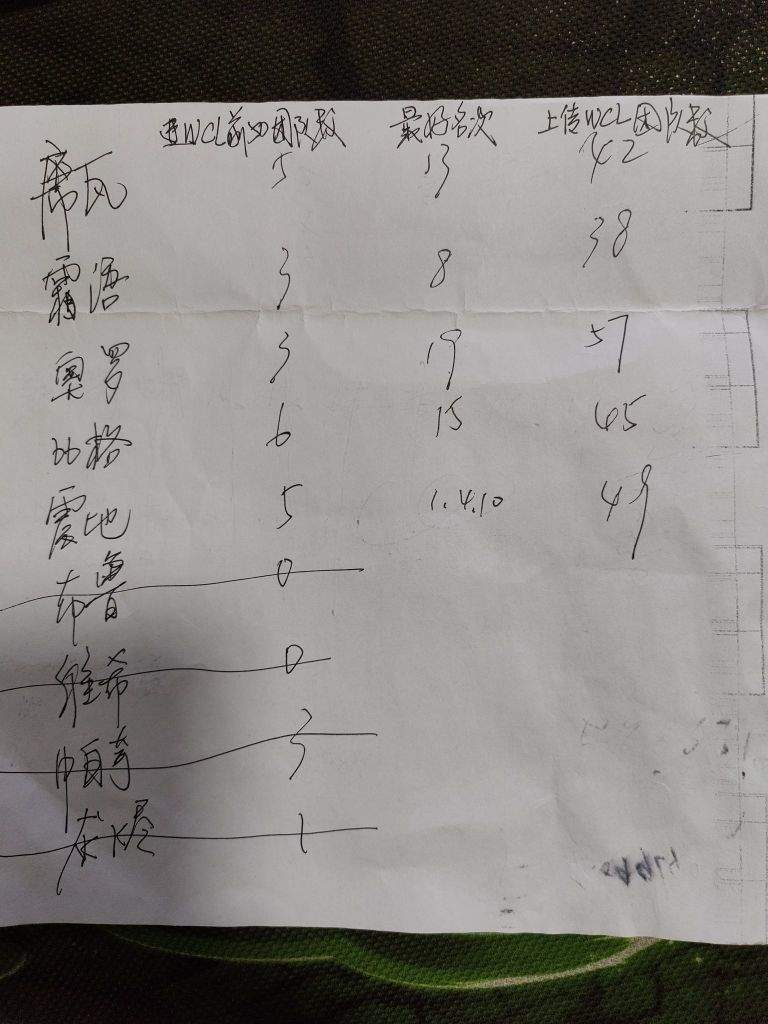 进WCL前四团队数 最好名次 上传WCL团队数
席瓦 5 13 42
霜语 3 8 38
奥罗 3 19 57
比格 6 15 45
震地 5 1.4.10 49
布鲁 0
雅希 0
帕奇 3
0
1